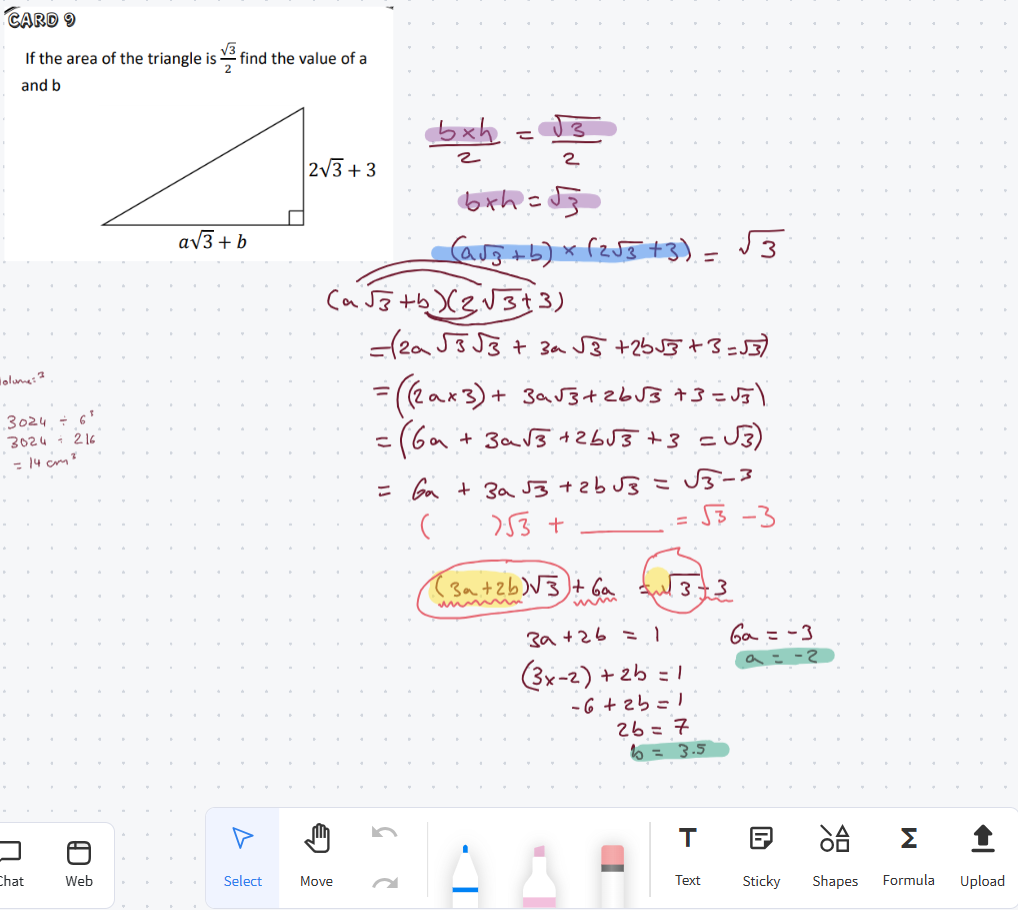 CARD 9
If the area of the triangle is √3/2 find the value of a
and b
2√3 + 3
a√3 + b
b×h/2 = √3/2
b×h = √3
(a√3 + b) × (2√3 + 3) = √3
(a√3 + b)(2√3 + 3)
=(2a√3√3 + 3a√3 + 2b√3 + 3 = √3)
= ((2a×3) + 3a√3 + 2b√3 + 3 = √3)
= (6a + 3a√3 + 2b√3 + 3 = √3)
= 6a + 3a√3 + 2b√3 = √3 - 3
( )√3 + ______ = √3 - 3
(3a+2b)√3 + 6a = √3 - 3
3a + 2b = 1
6a = -3
a = -2
(3x-2) + 2b = 1
-6 + 2b = 1
2b = 7
b = 3.5
3024 ÷ 6³
3024 ÷ 216
= 14 cm³
Chat
Web
Select
Move
Text
Sticky
Shapes
Formula
Upload